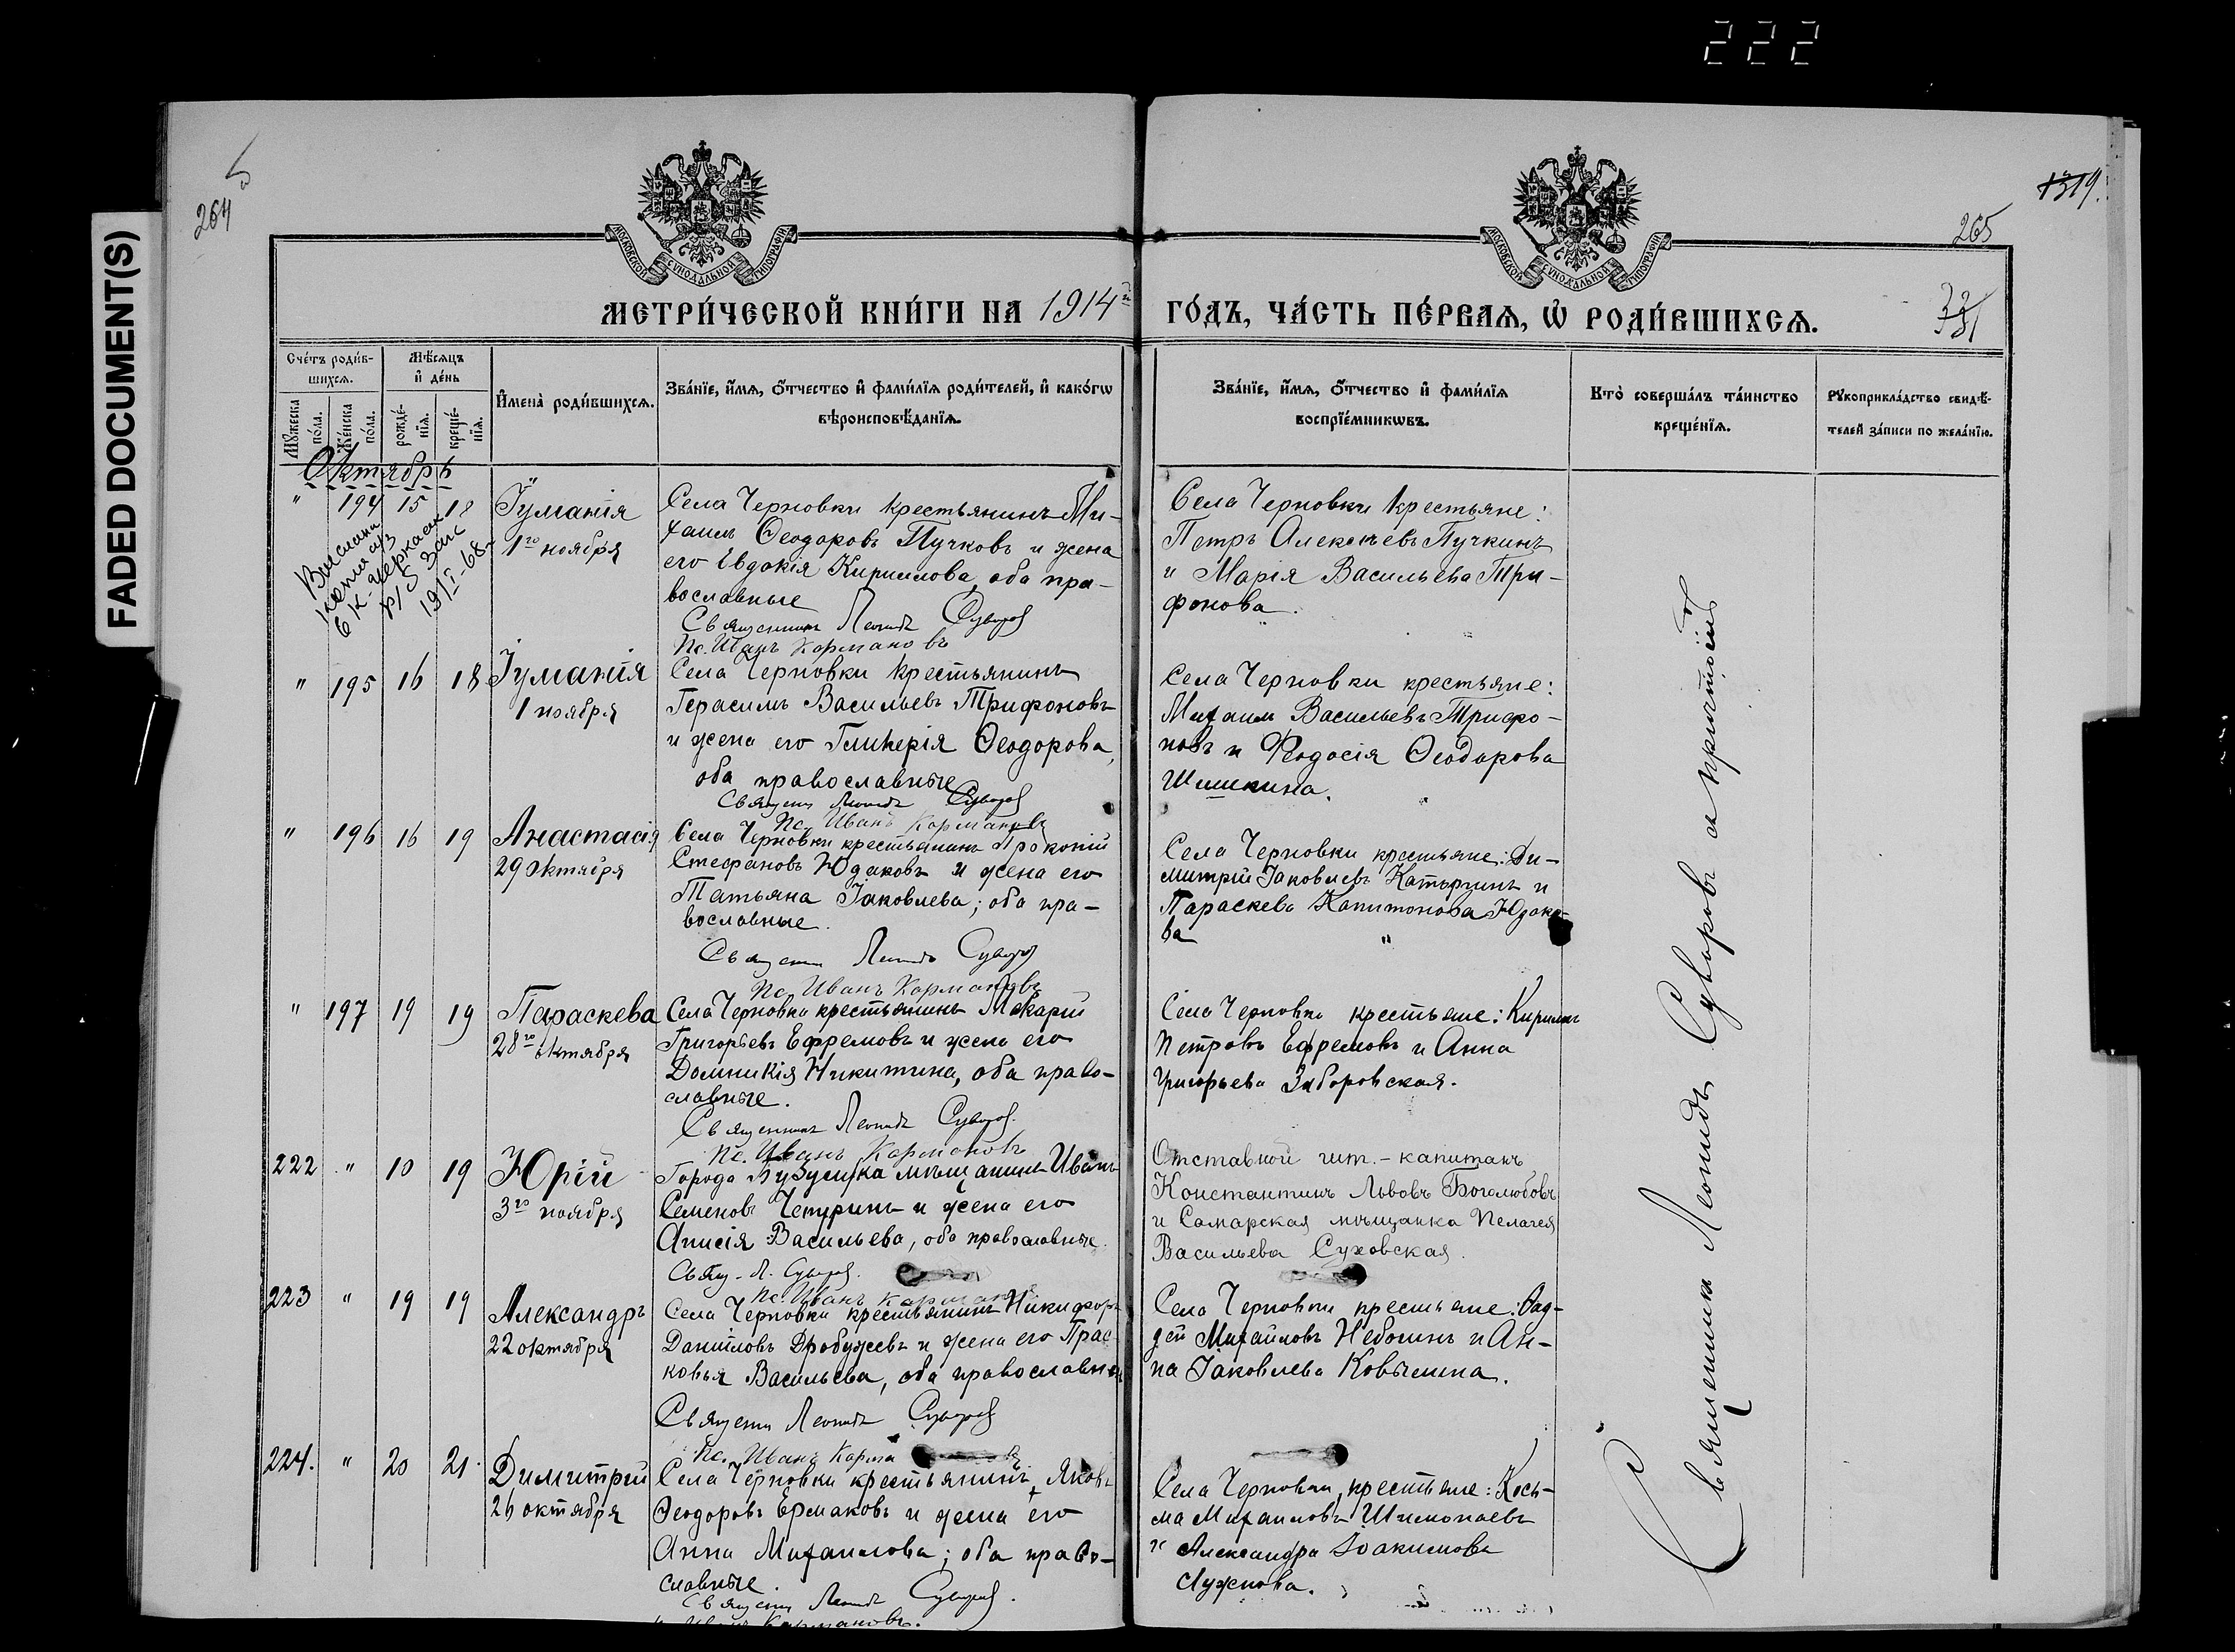 222
FADED DOCUMENT(S)
264
1319.
265
МОСКОВСКОЙ СѴНОДАЛЬНОЙ ТИПОГРАФІИ
МОСКОВСКОЙ СѴНОДАЛЬНОЙ ТИПОГРАФІИ
МЕТРИ́ЧЕСКОЙ КНИ́ГИ НА 1914й
ГО́ДЪ, ЧА́СТЬ ПЕ́РВАѦ, Ѡ҆ РОДИ́ВШИХСѦ.
Сче́тъ роди́в-
шихсѧ.
Мѣ́сѧцъ
и҆ де́нь
Мꙋ́жеска по́ла.
Же́нска по́ла.
рожде́-
нїѧ.
креще́-
нїѧ.
И҆мена̀ роди́вшихсѧ.
Зва́нїе, и҆́мѧ, ѻ҆́тчество и҆ фами́лїѧ роди́телей, и҆ како́гѡ
вѣроисповѣ́данїѧ.
Зва́нїе, и҆́мѧ, ѻ҆́тчество и҆ фами́лїѧ
воспрїе́мникѡвъ.
Кто̀ соверша́лъ та́инство
креще́нїѧ.
Рꙋкоприкла́дство свидѣ́-
телей за́писи по жела́нїю.
Октябрь
" 194 15 18
Іуліанія
1го ноября
Села Черновки крестьянинъ Ми-
хаилъ Ѳеодоровъ Пучковъ и жена
его Евдокія Кириллова, оба пра-
вославные
Священникъ Леонидъ Суворовъ
Пс. Иванъ Кармановъ
Села Черновки крестьяне:
Петръ Алексѣевъ Пучкинъ
и Марія Васильева Три-
фонова.
Выслана
19/I-68
" 195 16 18
Іуліанія
1 ноября
Села Черновки крестьянинъ
Герасимъ Васильевъ Трифоновъ
и жена его Гликерія Ѳеодорова,
оба православные
Священ Леонидъ Суворовъ
Пс. Иванъ Кармановъ
Села Черновки крестьяне:
Михаилъ Васильевъ Трифо-
новъ и Ѳеодосія Ѳеодорова
Шишкина.
" 196 16 19
Анастасія
29 Октября
Села Черновки крестьянинъ Прокопій
Стефановъ Юдаковъ и жена его
Татьяна Іаковлева; оба пра-
вославные.
Священ Леонидъ Суворовъ
Пс. Иванъ Кармановъ
Села Черновки крестьяне: Ди-
митрій Іаковлевъ Катыргинъ и
Параскева Капитонова Юдако-
ва
" 197 19 19
Параскева
28го октября
Села Черновки крестьянинъ Макарій
Григорьевъ Ефремовъ и жена его
Домникія Никитина, оба право-
славные.
Священникъ Леонидъ Суворовъ.
Пс. Иванъ Кармановъ
Села Черновки крестьяне: Кириллъ
Петровъ Ефремовъ и Анна
Григорьева Заборовская.
222 " 10 19
Юрій
3го ноября
Города Бузулука мѣщанинъ Иванъ
Семеновъ Чепуринъ и жена его
Анисія Васильева, оба православные.
Свящ. Л. Суворовъ.
Пс. Иванъ Кармановъ
Отставной шт.-капитанъ
Константинъ Львовъ Боголюбовъ
и Самарская мѣщанка Пелагея
Васильева Суховская.
223 " 19 19
Александръ
22 октября
Села Черновки крестьянинъ Никифоръ
Даниловъ Дробужевъ и жена его Прас-
ковья Васильева, оба православные
Священ Леонидъ Суворовъ
Пс. Иванъ Карма въ
Села Черновки крестьяне: Ѳад-
дей Михаиловъ Небогинъ и Ан-
на Іаковлева Ковылина.
224. " 20 21.
Димитрій
26 октября
Села Черновки крестьянинъ Яковъ
Ѳеодоровъ Ермаковъ и жена его
Анна Михаилова; оба право-
славные.
Священ Леонидъ Суворовъ.
Иванъ Кармановъ.
Села Черновки крестьяне: Кось-
ма Михаиловъ Шимонаевъ
и Александра Іоакимова
Лужнова.
Священникъ Леонидъ Суворовъ и причтъ